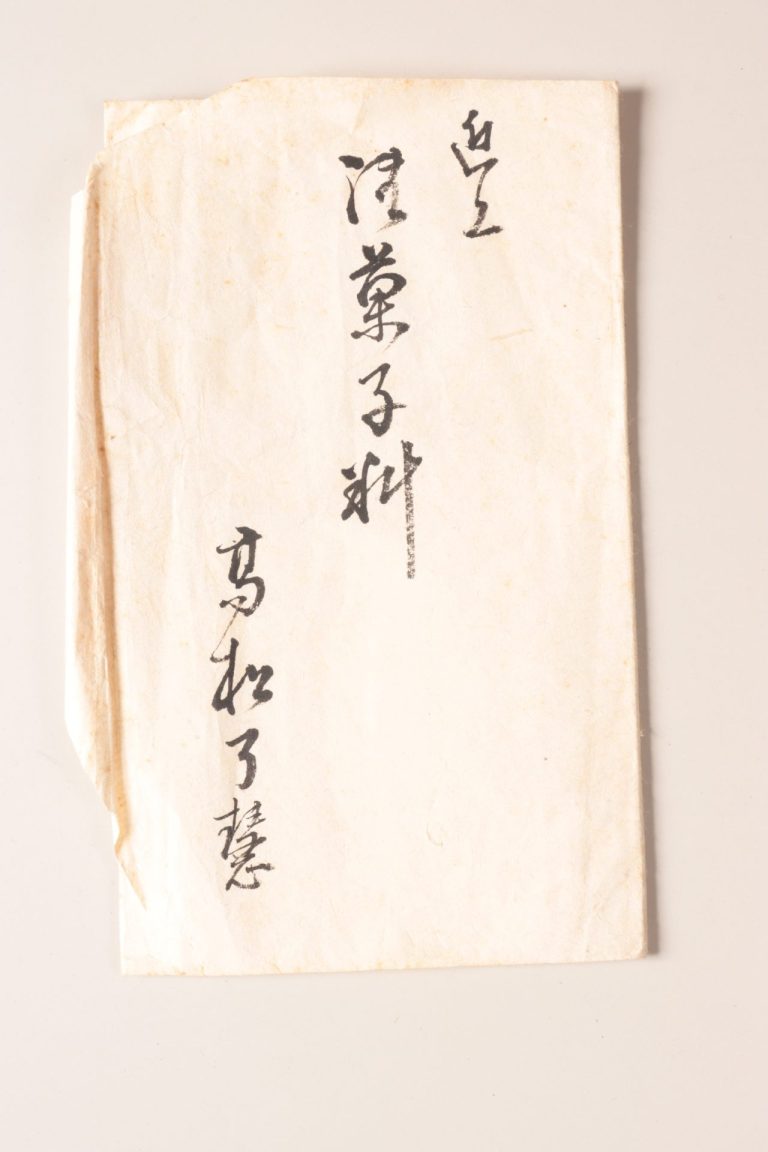 進上
御菓子料
高松了慧